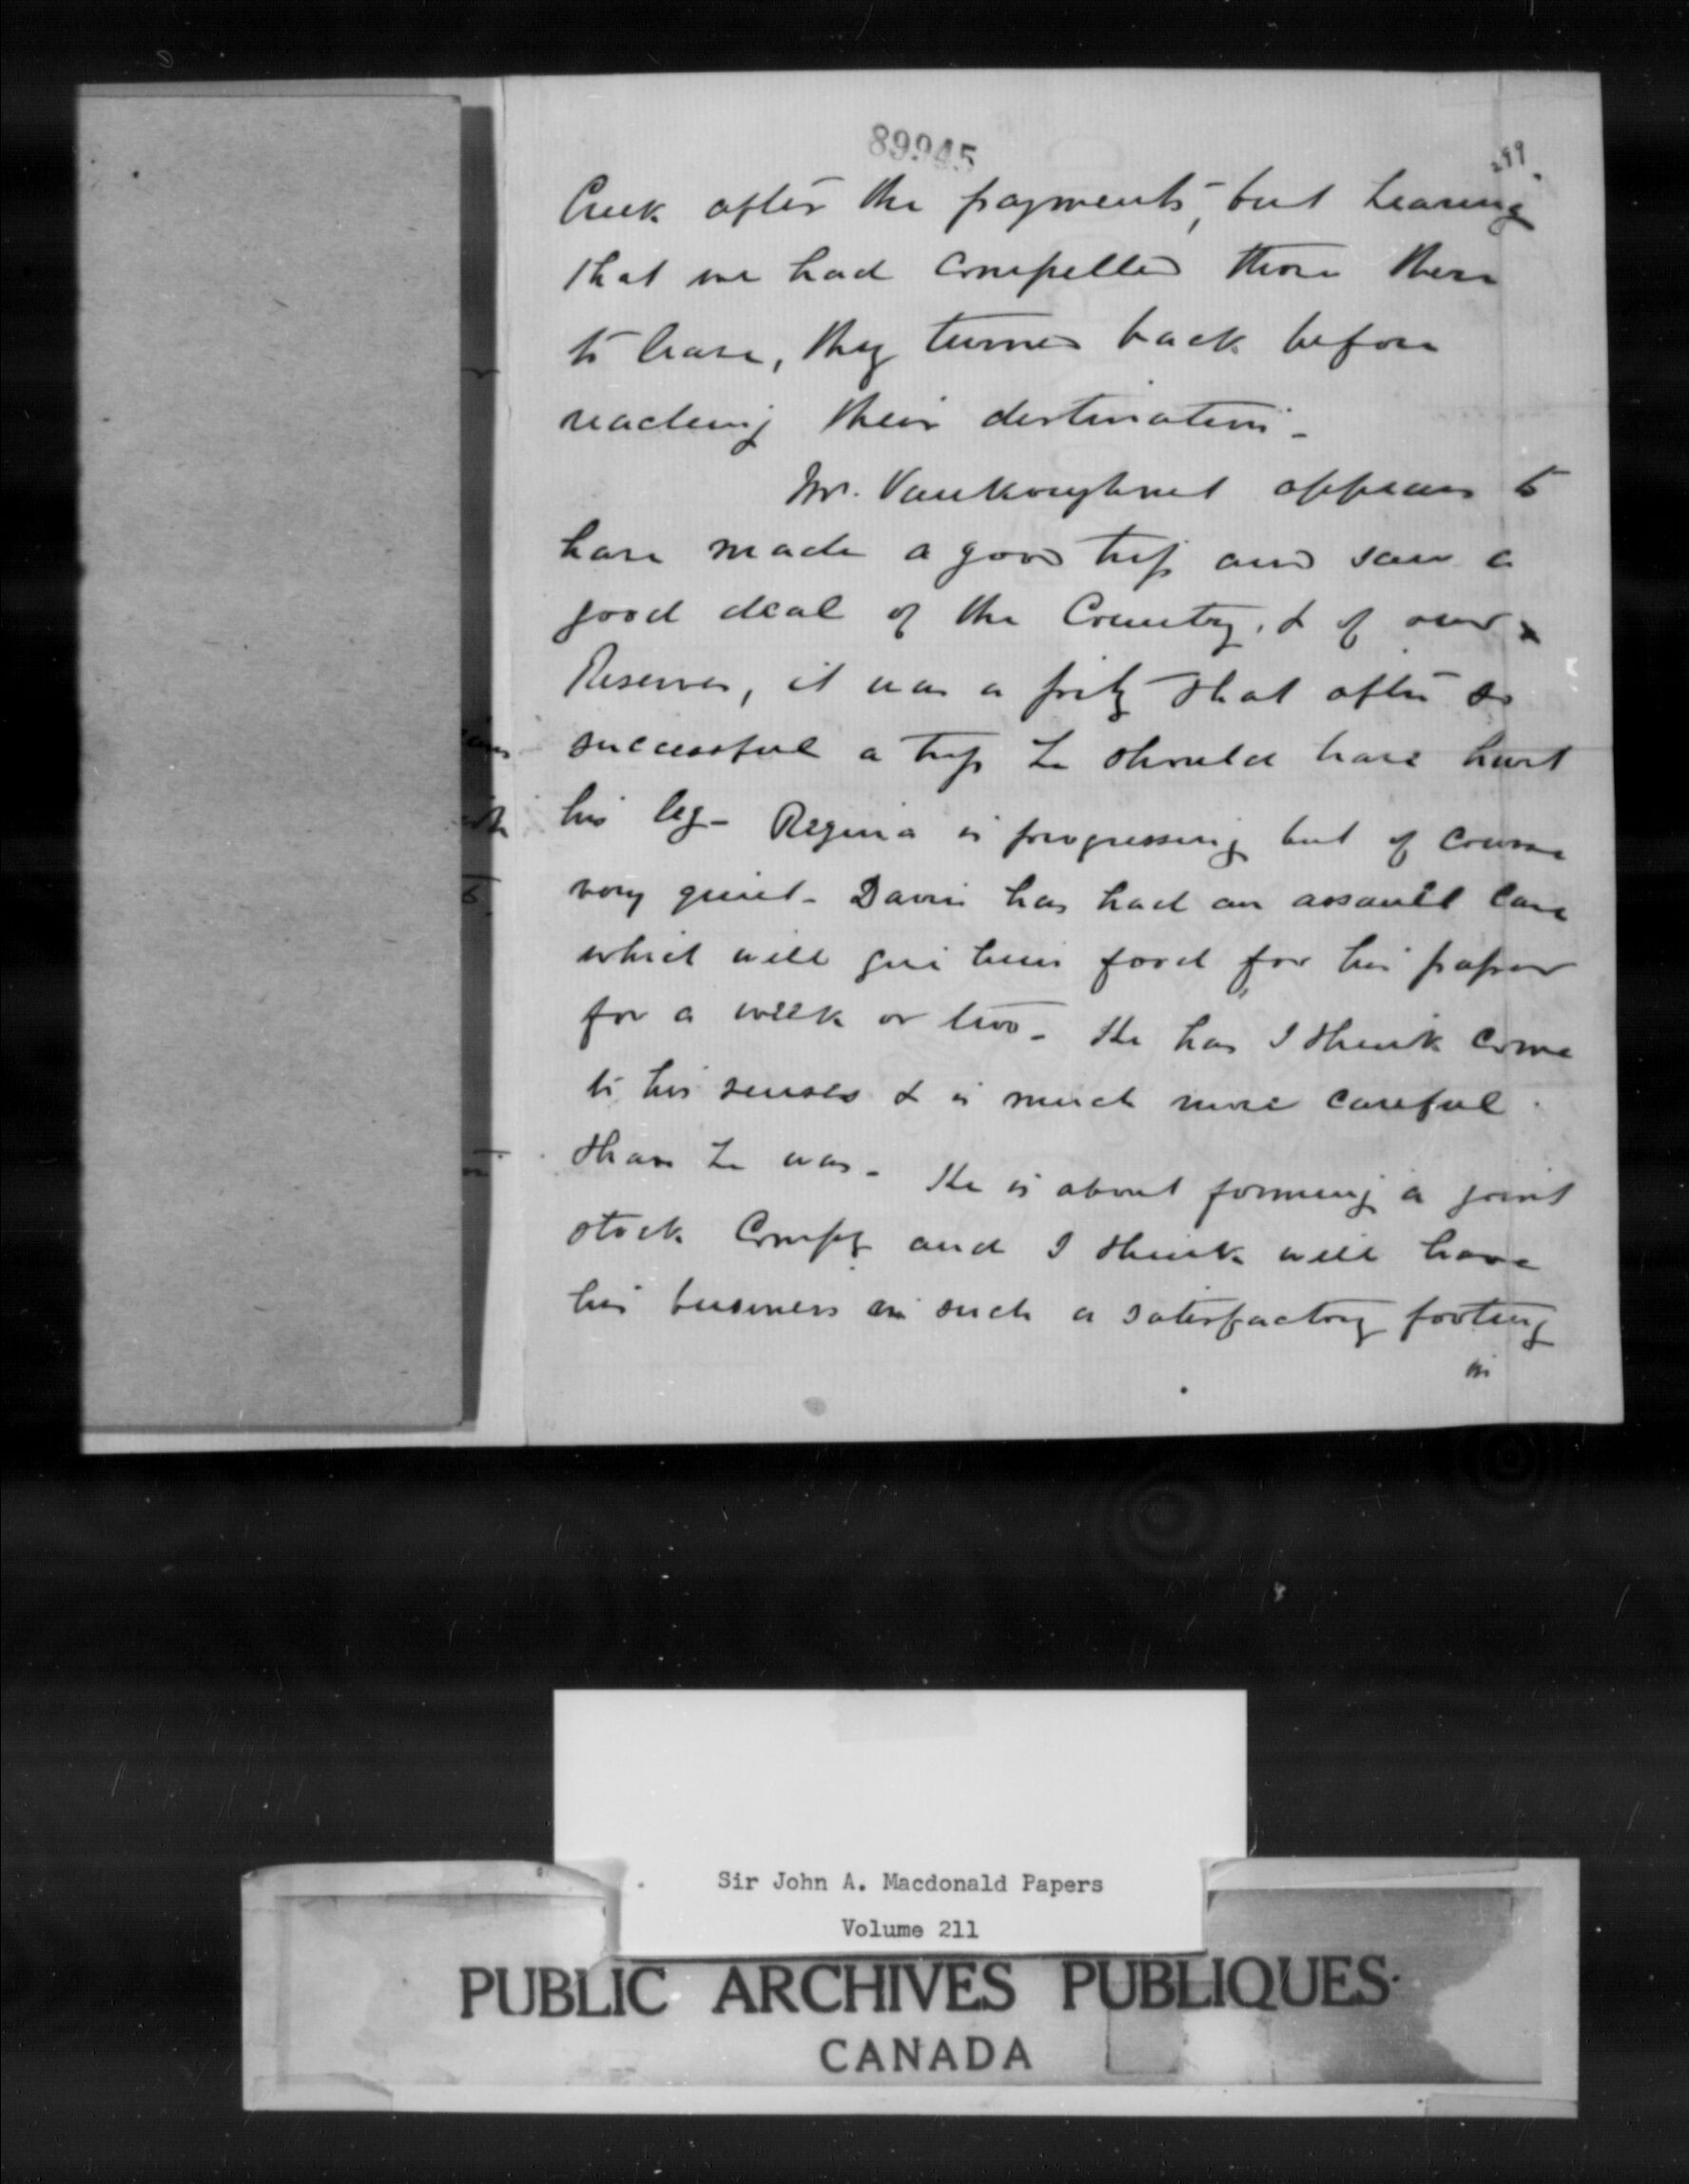 89945
299
Creek after the payments, but hearing
that we had compelled those there
to leave, they turned back before
reaching their destination -
Mr. Vankoughnet appears to
have made a good trip and saw a
good deal of the Country, & of our
Reserves, it was a pity that after so
successful a trip he should have hurt
his leg - Regina is progressing but of course
very quiet - Davin has had an assault case
which will give him food for his paper
for a week or two - He has I think come
to his senses & is much more careful
than he was - He is about forming a joint
stock Compy and I think will have
his business on such a satisfactory footing
in
Sir John A. Macdonald Papers
Volume 211
PUBLIC ARCHIVES PUBLIQUES
CANADA